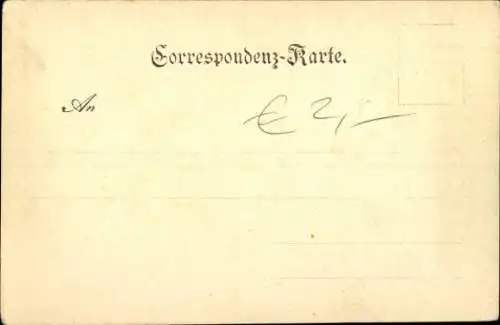 Correspondenz-Karte.
An
€ 2,-